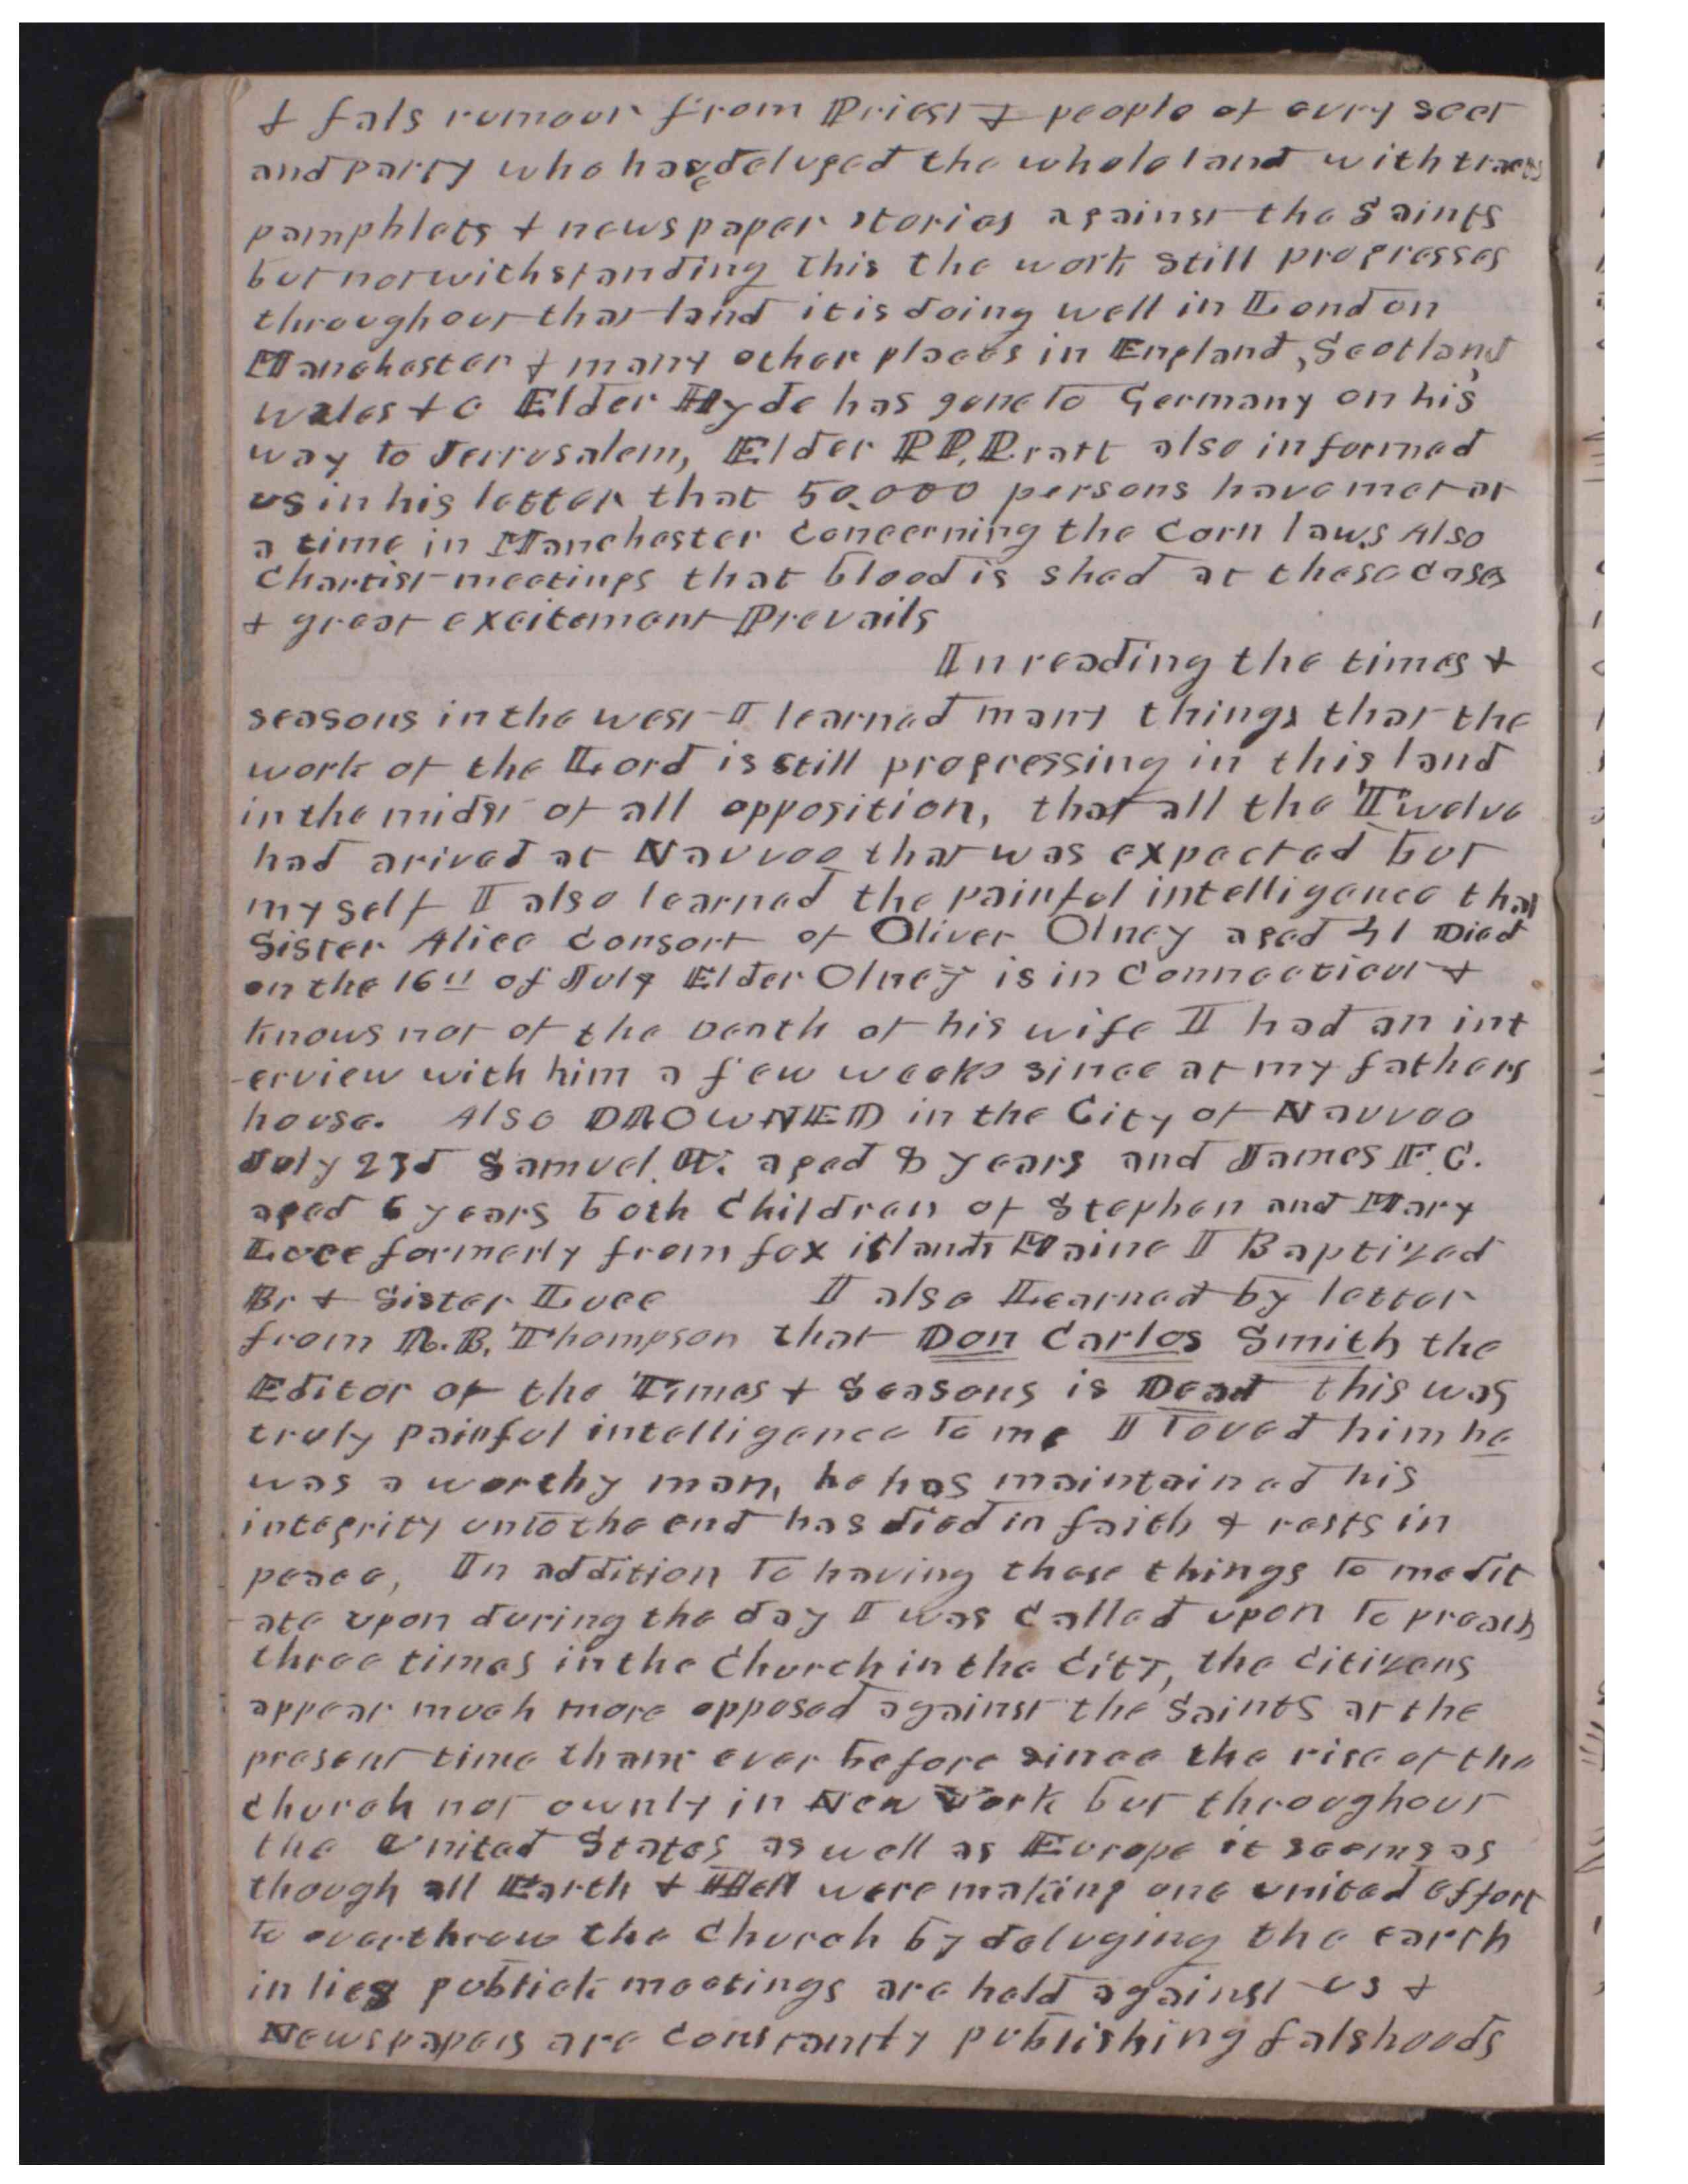 & fals rumour from Priest & people of evry sect
and party who have deluged the whole land with tracts
pamphlets & newspaper stories against the Saints
but notwithstanding this the work still progresses
throughout that land it is doing well in London
Manchester & many other places in England, Scotland,
wales &c Elder Hyde has gone to Germany on his
way to Jerrusalem, Elder P P. Pratt also informed
us in his letter that 50.000 persons have met at
a time in Manchester concerning the Corn laws Also
Chartist meetings that blood is shed at these cases
& great excitement Prevails
In reading the times &
seasons in the west I learned many things that the
work of the Lord is still progressing in this land
in the midst of all opposition, that all the Twelve
had arived at Nauvoo that was expected but
myself I also learned the painful intelligence that
Sister Alice Consort of Oliver Olney aged 41 Died
on the 16th of July Elder Olney is in Connecticut &
knows not of the Death of his wife I had an int
-erview with him a few weeks since at my fathers
house. Also DROWNED in the City of Nauvoo
July 23d Samuel. W. aged 8 years and James F. C.
aged 6 years both Children of Stephen and Mary
Luce formerly from fox islands Maine I Baptized
Br & Sister Luce I also Learned by letter
from R. B. Thompson that Don Carlos Smith the
Editor of the Times & Seasons is Dead this was
truly painful intelligence to me I loved him he
was a worthy man, he has maintained his
integrity unto the end has died in faith & rests in
peace, In addition to having these things to medit
-ate upon during the day I was called upon to preach
three times in the Church in the City, the citizens
appear much more opposed against the Saints at the
present time than ever before since the rise of the
church not ownly in New York but throughout
the United States as well as Europe it seems as
though all Earth & Hell were making one united effort
to overthrow the Church by deluging the earth
in lies publick meetings are held against us &
Newspapers are constantly publishing falshoods